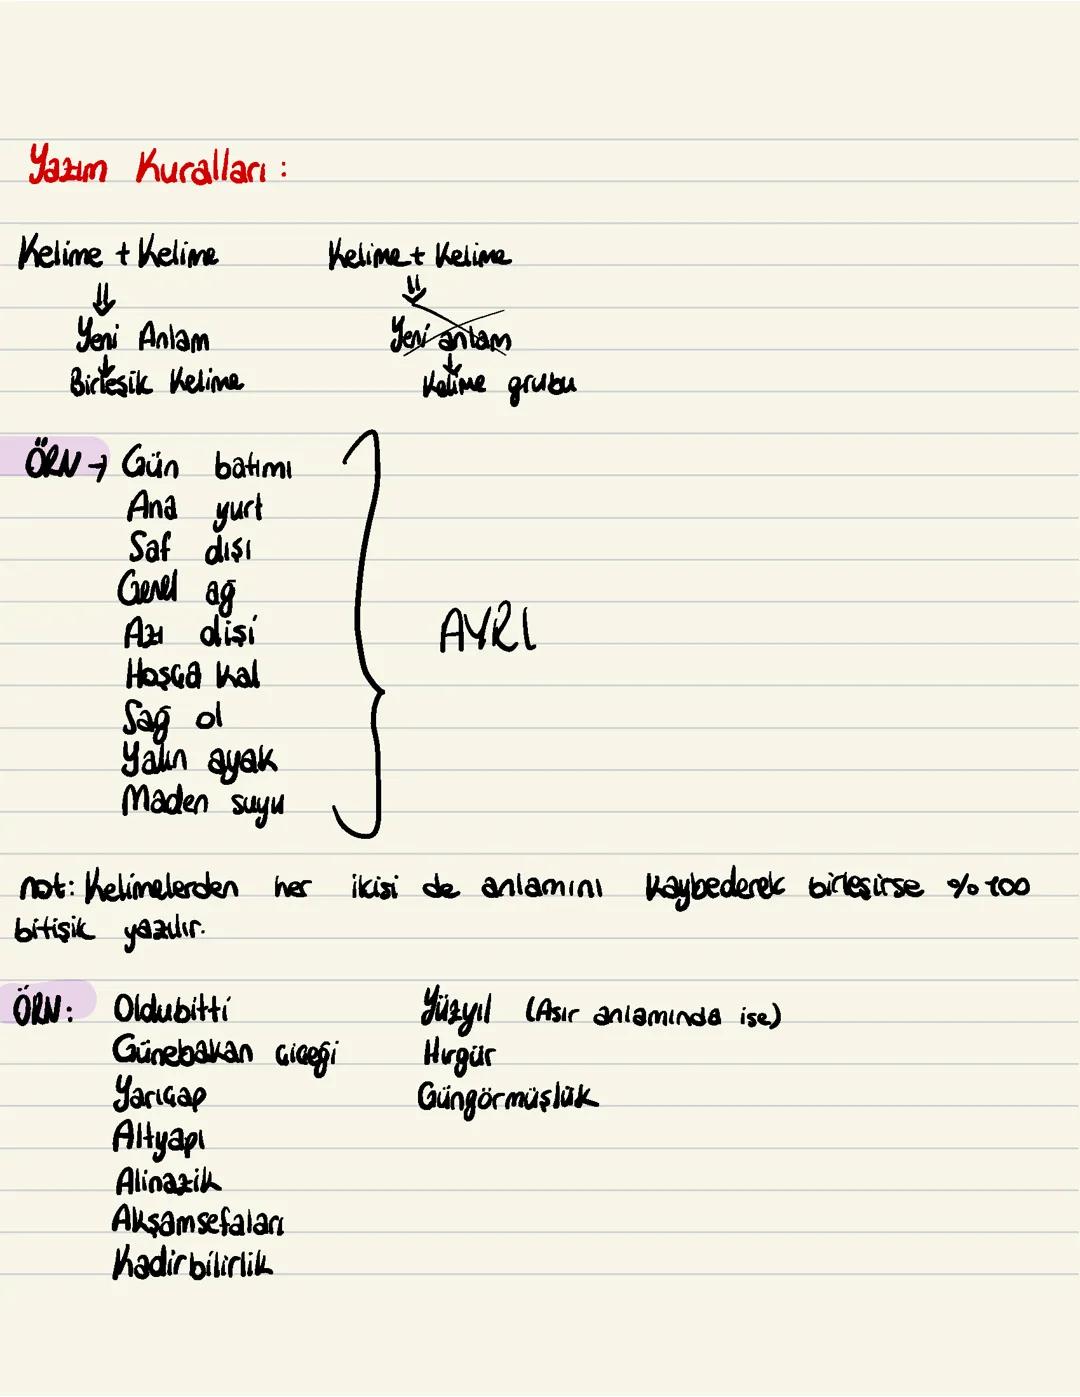 Yazım Kuralları :
Kelime + Kelime Kelime + Kelime
⇓ ⇓
Yeni Anlam Yeni anlam
↓ ↓
Birleşik Kelime Kelime grubu
ÖRN → Gün batımı
Ana yurt
Saf dışı
Genel ağ
Azı dişi
Hoşça kal
Sağ ol
Yalın ayak
Maden suyu
AYRI
not: Kelimelerden her ikisi de anlamını kaybederek birleşirse %100
bitişik yazılır.
ÖRN: Oldubitti Yüzyıl (Asır anlamında ise)
Günebakan çiçeği Hırgür
Yarıçap Güngörmüşlük
Altyapı
Alinazik
Akşamsefaları
Kadirbilirlik